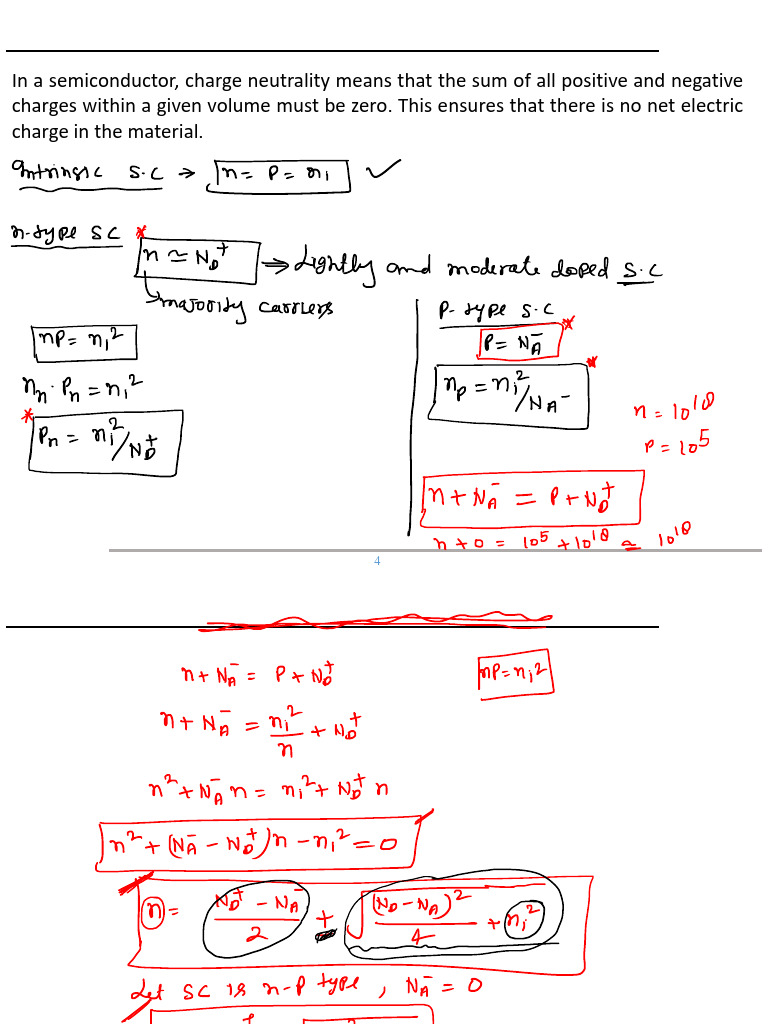 In a semiconductor, charge neutrality means that the sum of all positive and negative
charges within a given volume must be zero. This ensures that there is no net electric
charge in the material.
Intrinsic S.C → n = P = nᵢ ✓
n-type SC * n ≃ N_D⁺ ⇒ Lightly and moderate doped S.C
↳ majority carriers
nP = nᵢ²
nₙ · Pₙ = nᵢ²
* Pₙ = nᵢ²/N_D⁺
P-type S.C
P = N_A⁻ *
n_p = nᵢ²/N_A⁻ *
n = 10¹⁸
P = 10⁵
n + N_A⁻ = P + N_D⁺
n + 0 = 10⁵ + 10¹⁸ ≃ 10¹⁸
4
n + N_A⁻ = P + N_D⁺
nP = nᵢ²
n + N_A⁻ = nᵢ²/n + N_D⁺
n² + N_A⁻ n = nᵢ² + N_D⁺ n
n² + (N_A⁻ - N_D⁺)n - nᵢ² = 0
n = (N_D⁺ - N_A⁻)/2 + √((N_D - N_A)²/4 + nᵢ²)
Let SC is n-P type, N_A⁻ = 0